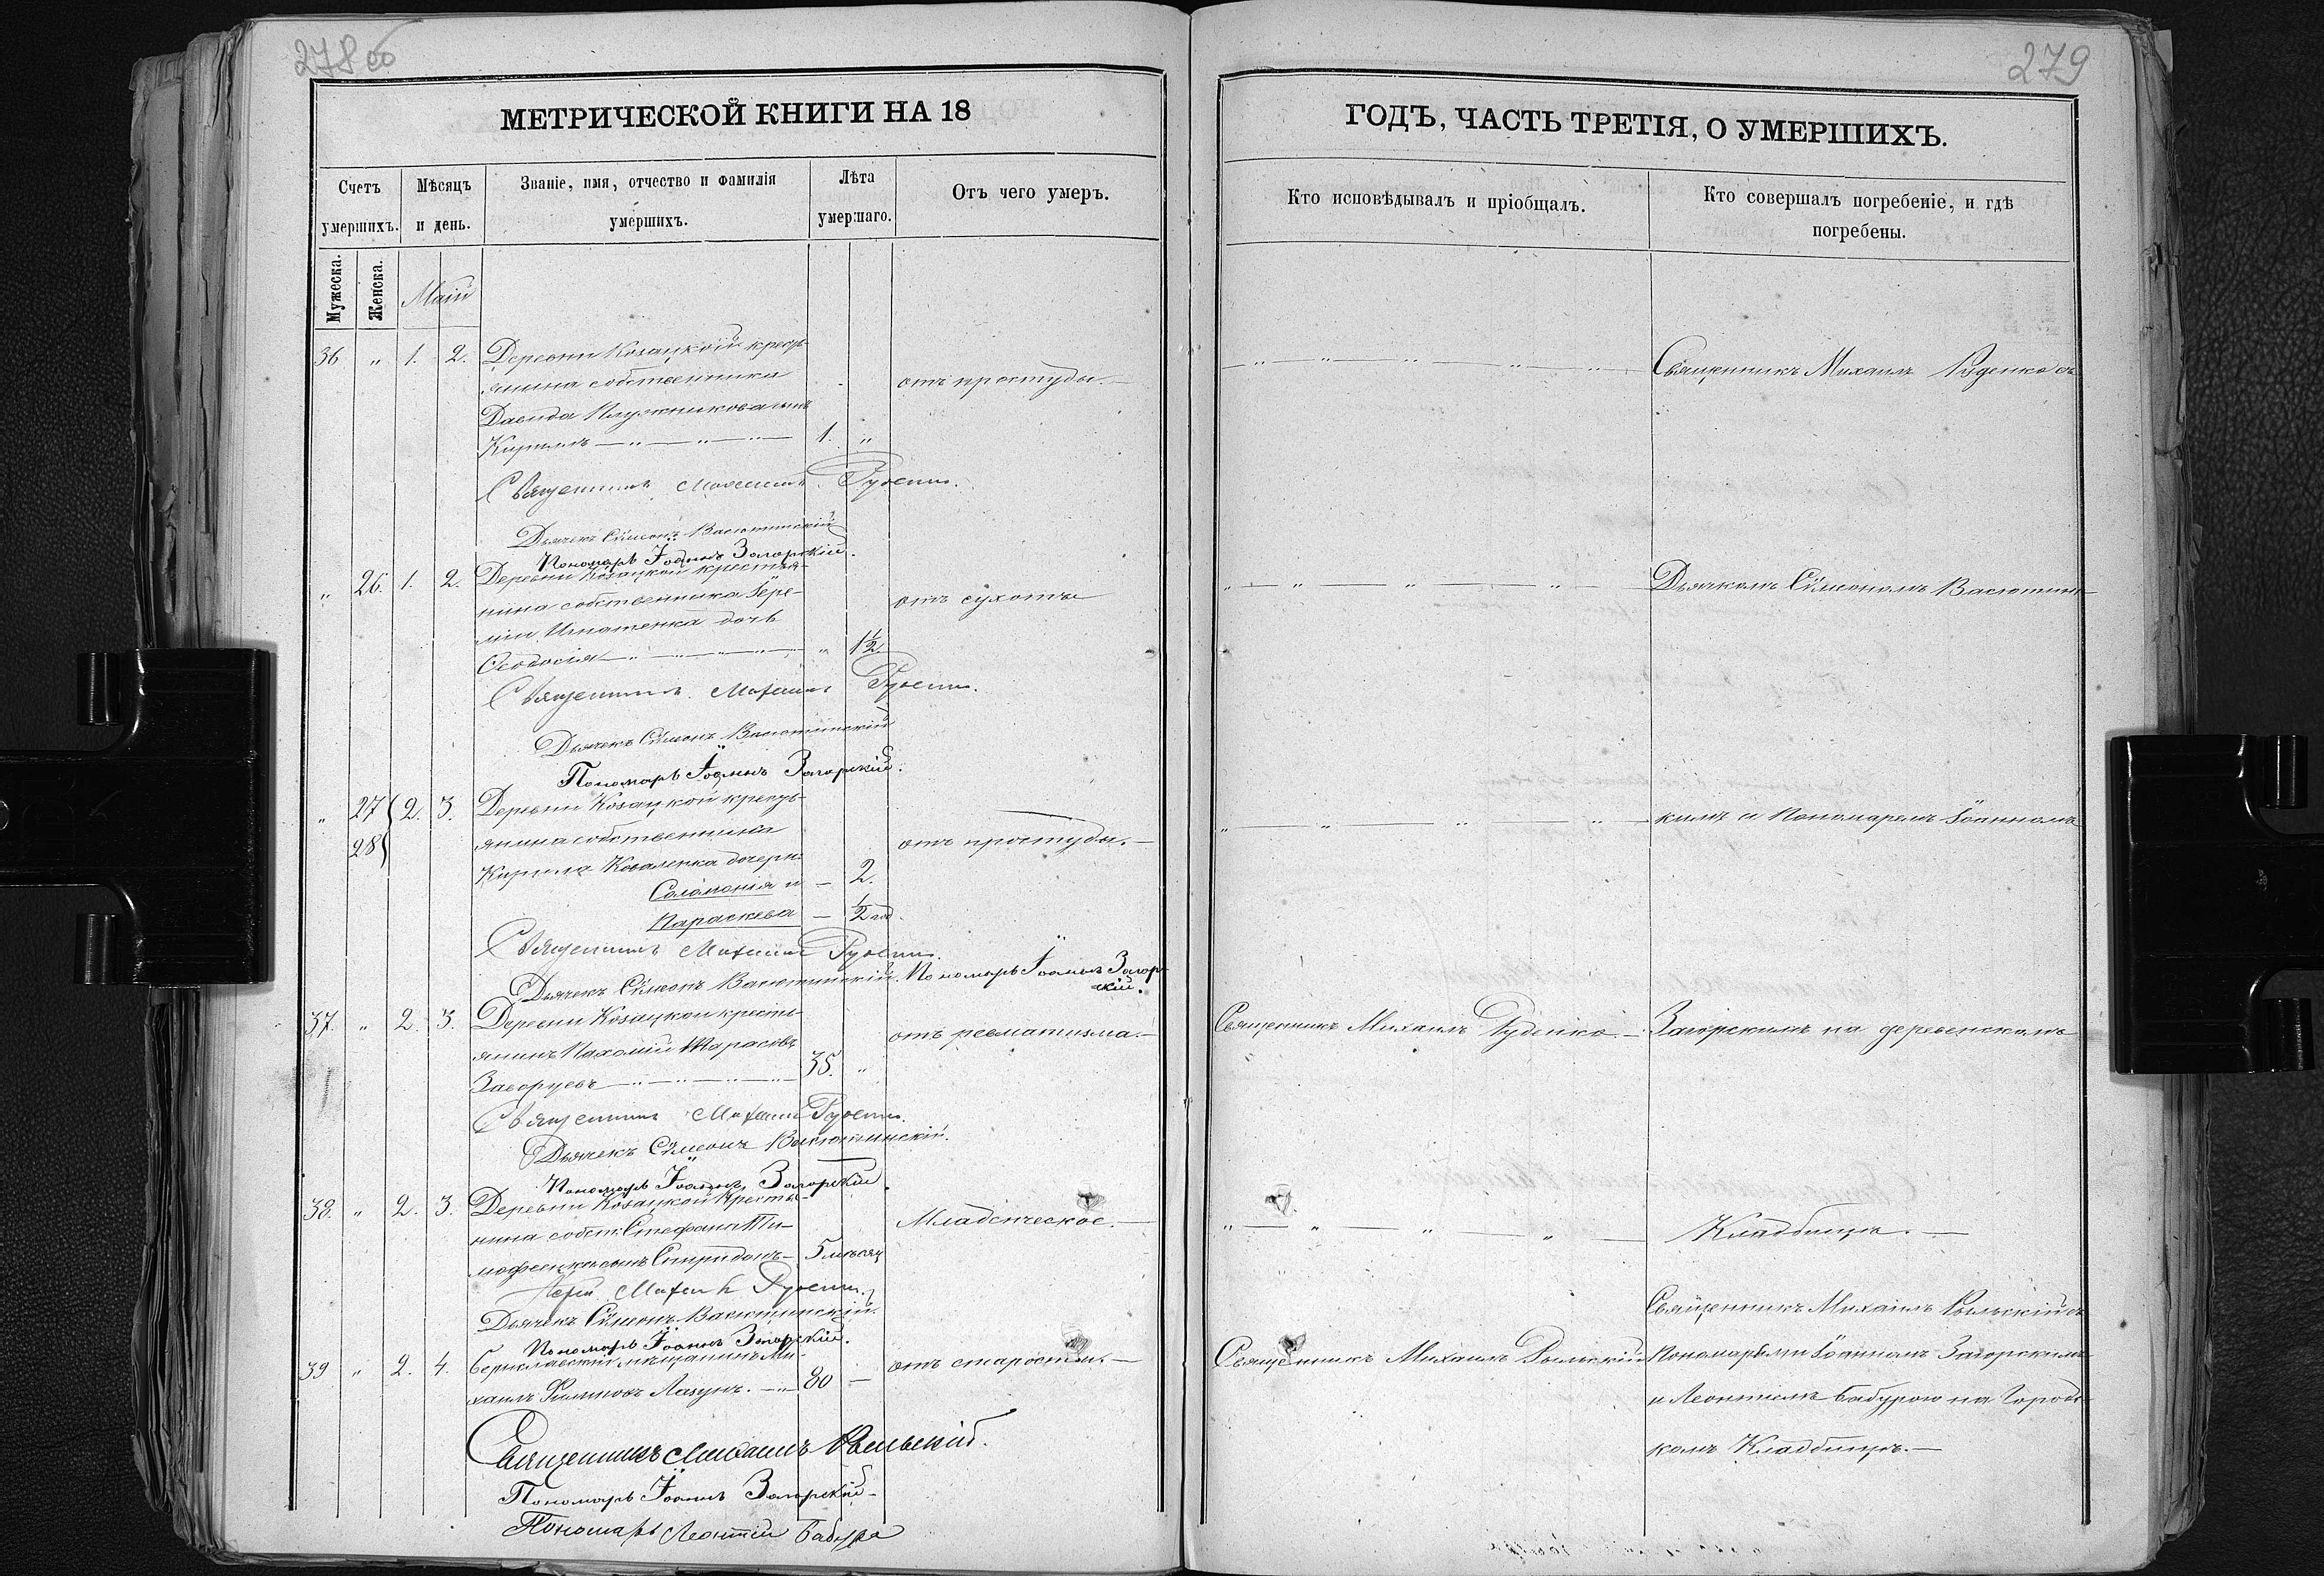 278 об
МЕТРИЧЕСКОЙ КНИГИ НА 18
Счетъ умершихъ.
Мѣсяцъ и день.
Званіе, имя, отчество и фамилія умершихъ.
Лѣта умершаго.
Отъ чего умеръ.
Мужеска.
Женска.
Маій
36 „ 1. 2. Деревни Козацкой кресть-
янина собственника
отъ простуды.—
Давида Плужникова сынъ
Кириллъ — „ — „ — „ — 1. „
Священникъ Михаилъ Руденко.
Дьячекъ Сѵмеонъ Васютинскій
Пономарь Іоаннъ Загорскій.
„ 26. 1. 2. Деревни Козацкой крестья-
нина собственника Іере-
отъ сухоты
міи Игнатенка дочь
Ѳеодосія — „ — „ — „ 1½
Священникъ Михаилъ Руденко.
Дьячекъ Сѵмеонъ Васютинскій
Пономарь Іоаннъ Загорскій.
„ 27 2. 3. Деревни Козацкой кресть-
28
янина собственника
отъ простуды.—
Кирила Коваленка дочери:
Саломонія и — 2.
Параскева — ½ год.
Священникъ Михаилъ Руденко.
Дьячекъ Сѵмеонъ Васютинскій. Пономарь Іоаннъ Загор-
скій.
37. „ 2. 3. Деревни Козацкой кресть-
янинъ Пахомій Тарасовъ
отъ ревматизма.—
— „ — „ — „ — 35. „
Священникъ Михаилъ Руденко.
Дьячекъ Сѵмеонъ Васютинскій.
Пономарь Іоаннъ Загорскій.
38. „ 2. 3. Деревни Козацкой крестья-
нина собст. Стефана Ти-
Младенческое.—
мофеенка сынъ Спиридонъ — 5 мѣсяц
Іерей Михаилъ Руденко.
Дьячекъ Сѵмеонъ Васютинскій.
Пономарь Іоаннъ Загорскій.
39 „ 2. 4. Бериславскій мѣщанинъ Ми-
хаилъ Филиповъ Лазунъ. — „ 80 —
отъ старости.—
Священникъ Михаилъ Рыльскій.
Пономарь Іоаннъ Загорскій
Пономарь Леонтій Бабура
279
ГОДЪ, ЧАСТЬ ТРЕТІЯ, О УМЕРШИХЪ.
Кто исповѣдывалъ и пріобщалъ.
Кто совершалъ погребеніе, и гдѣ погребены.
— „ — „ — „ — „ — „ — Священникъ Михаилъ Руденко съ
„ — „ — „ — „ — Дьячкомъ Сѵмеономъ Васютин-
„ — „ — „ — „ — кимъ и Пономаремъ Іоанномъ
Священникъ Михаилъ Руденко.— Загорскимъ на деревенскомъ
„ — „ — „ — „ — Кладбищѣ.—
Священникъ Михаилъ Рыльскій съ
Священникъ Михаилъ Рыльскій Пономарями Іоанномъ Загорскимъ
и Леонтіемъ Бабурою на Городс-
комъ Кладбищѣ.—